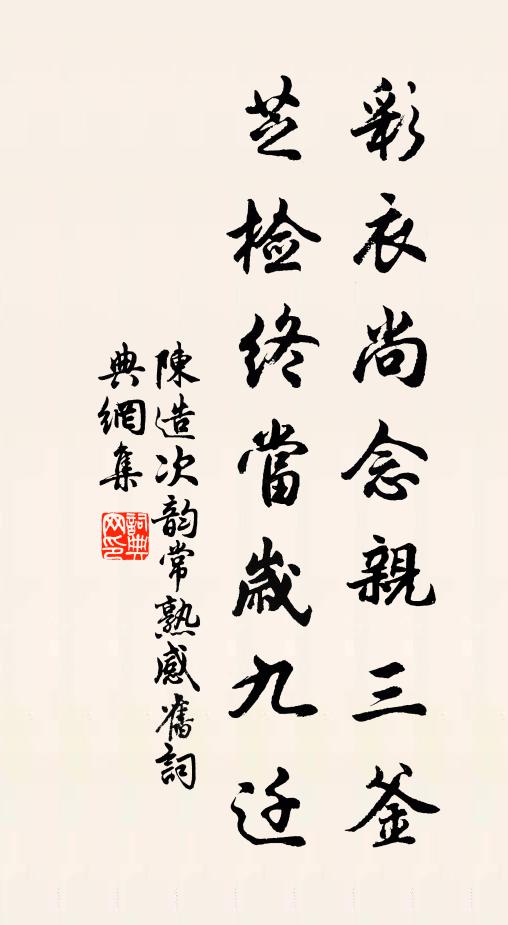 彩衣尚念親三釜
芝檢终當歲九迁
陳造次韵常熟感舊詞
典網集
詞典
网印